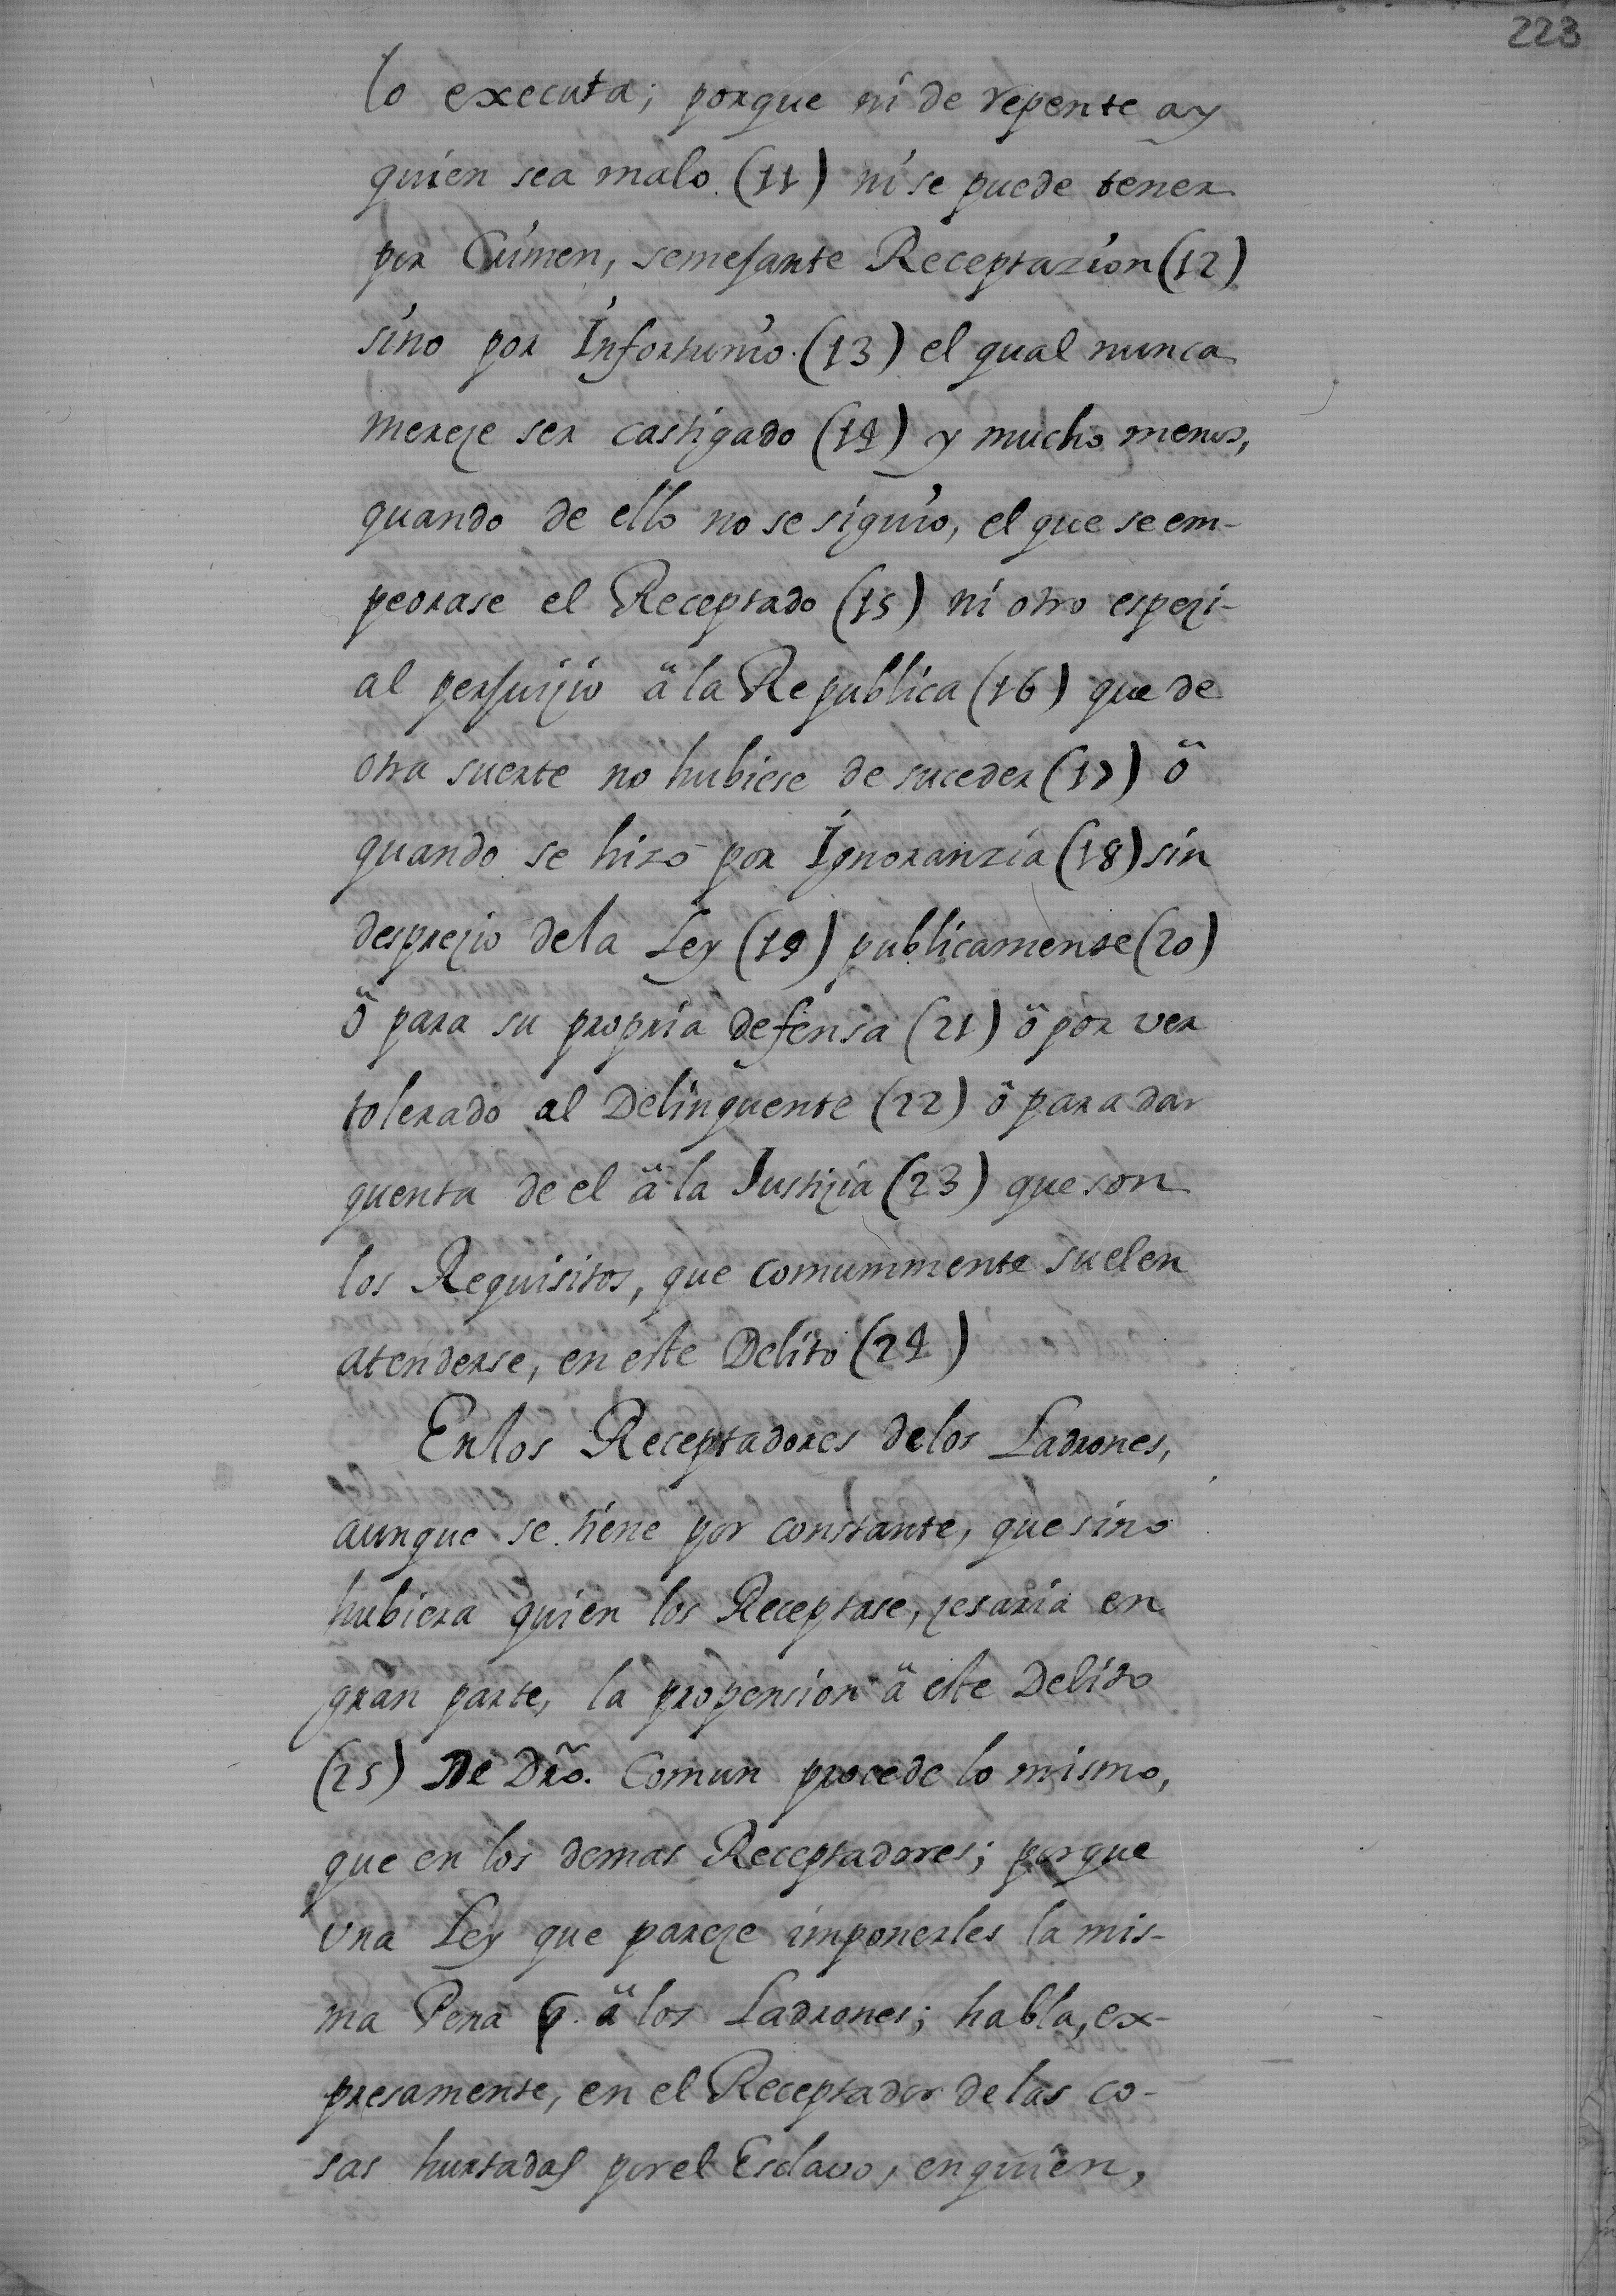 223
lo executa; porque ni de repente ay
quien sea malo. (11) ni se puede tener
por Crimen, semejante Receptazion (12)
sino por Infortunio. (13) el qual nunca
mereze ser castigado (14) y mucho menos,
quando de ello no se siguio, el que se em-
peorase el Receptado (15) ni otro espezi-
al perjuizio â la Republica (16) que de
otra suerte no hubiese de suceder (17) ô
quando se hizo por Ignoranzia (18) sin
desprezio dela Ley (19) publicamente (20)
ô para su propria defensa (21) ô por ver
tolerado al Delinquente (22) ô para dar
quenta de el â la Justizia (23) que son
los Requisitos, que comummente suelen
atenderse, en este Delito (24)
En los Receptadores delos Ladrones,
aunque se tiene por constante, que sino
hubiera quien los Receptase, zesaria en
gran parte, la propension â este Delito
(25) De Dr̃o. Comun procede lo mismo,
que en los demas Receptadores; porque
una Ley que pareze imponerles la mis-
ma Pena q. â los Ladrones; habla, ex-
presamente, en el Receptador de las co-
sas hurtadas por el Esclavo, en quien,